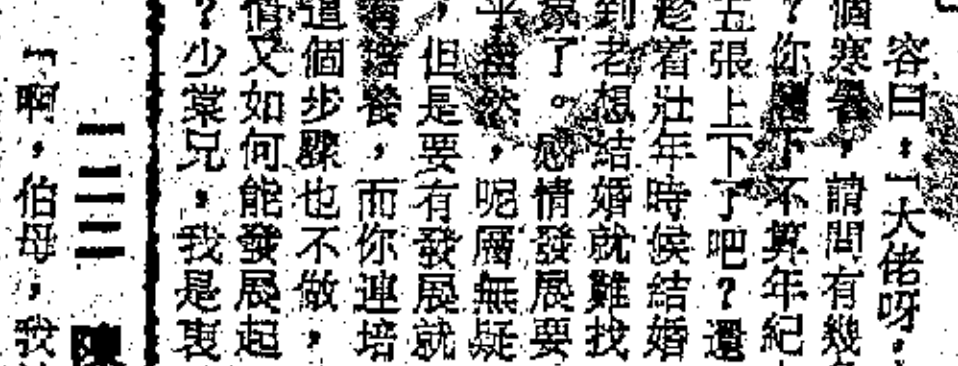 容曰：「大佬呀，
個寒暑，請問有幾
？你閣下不算年紀
五張上下了吧？還
趁着壯年時候結婚
到老想結婚就難找
象了。感情發展要
乎自然，呢層無疑
，但是要有發展就
着培養，而你連培
這個步驟也不做，
情又如何能發展起
？少棠兄，我是衷
一二三 陳
「啊，伯母，我